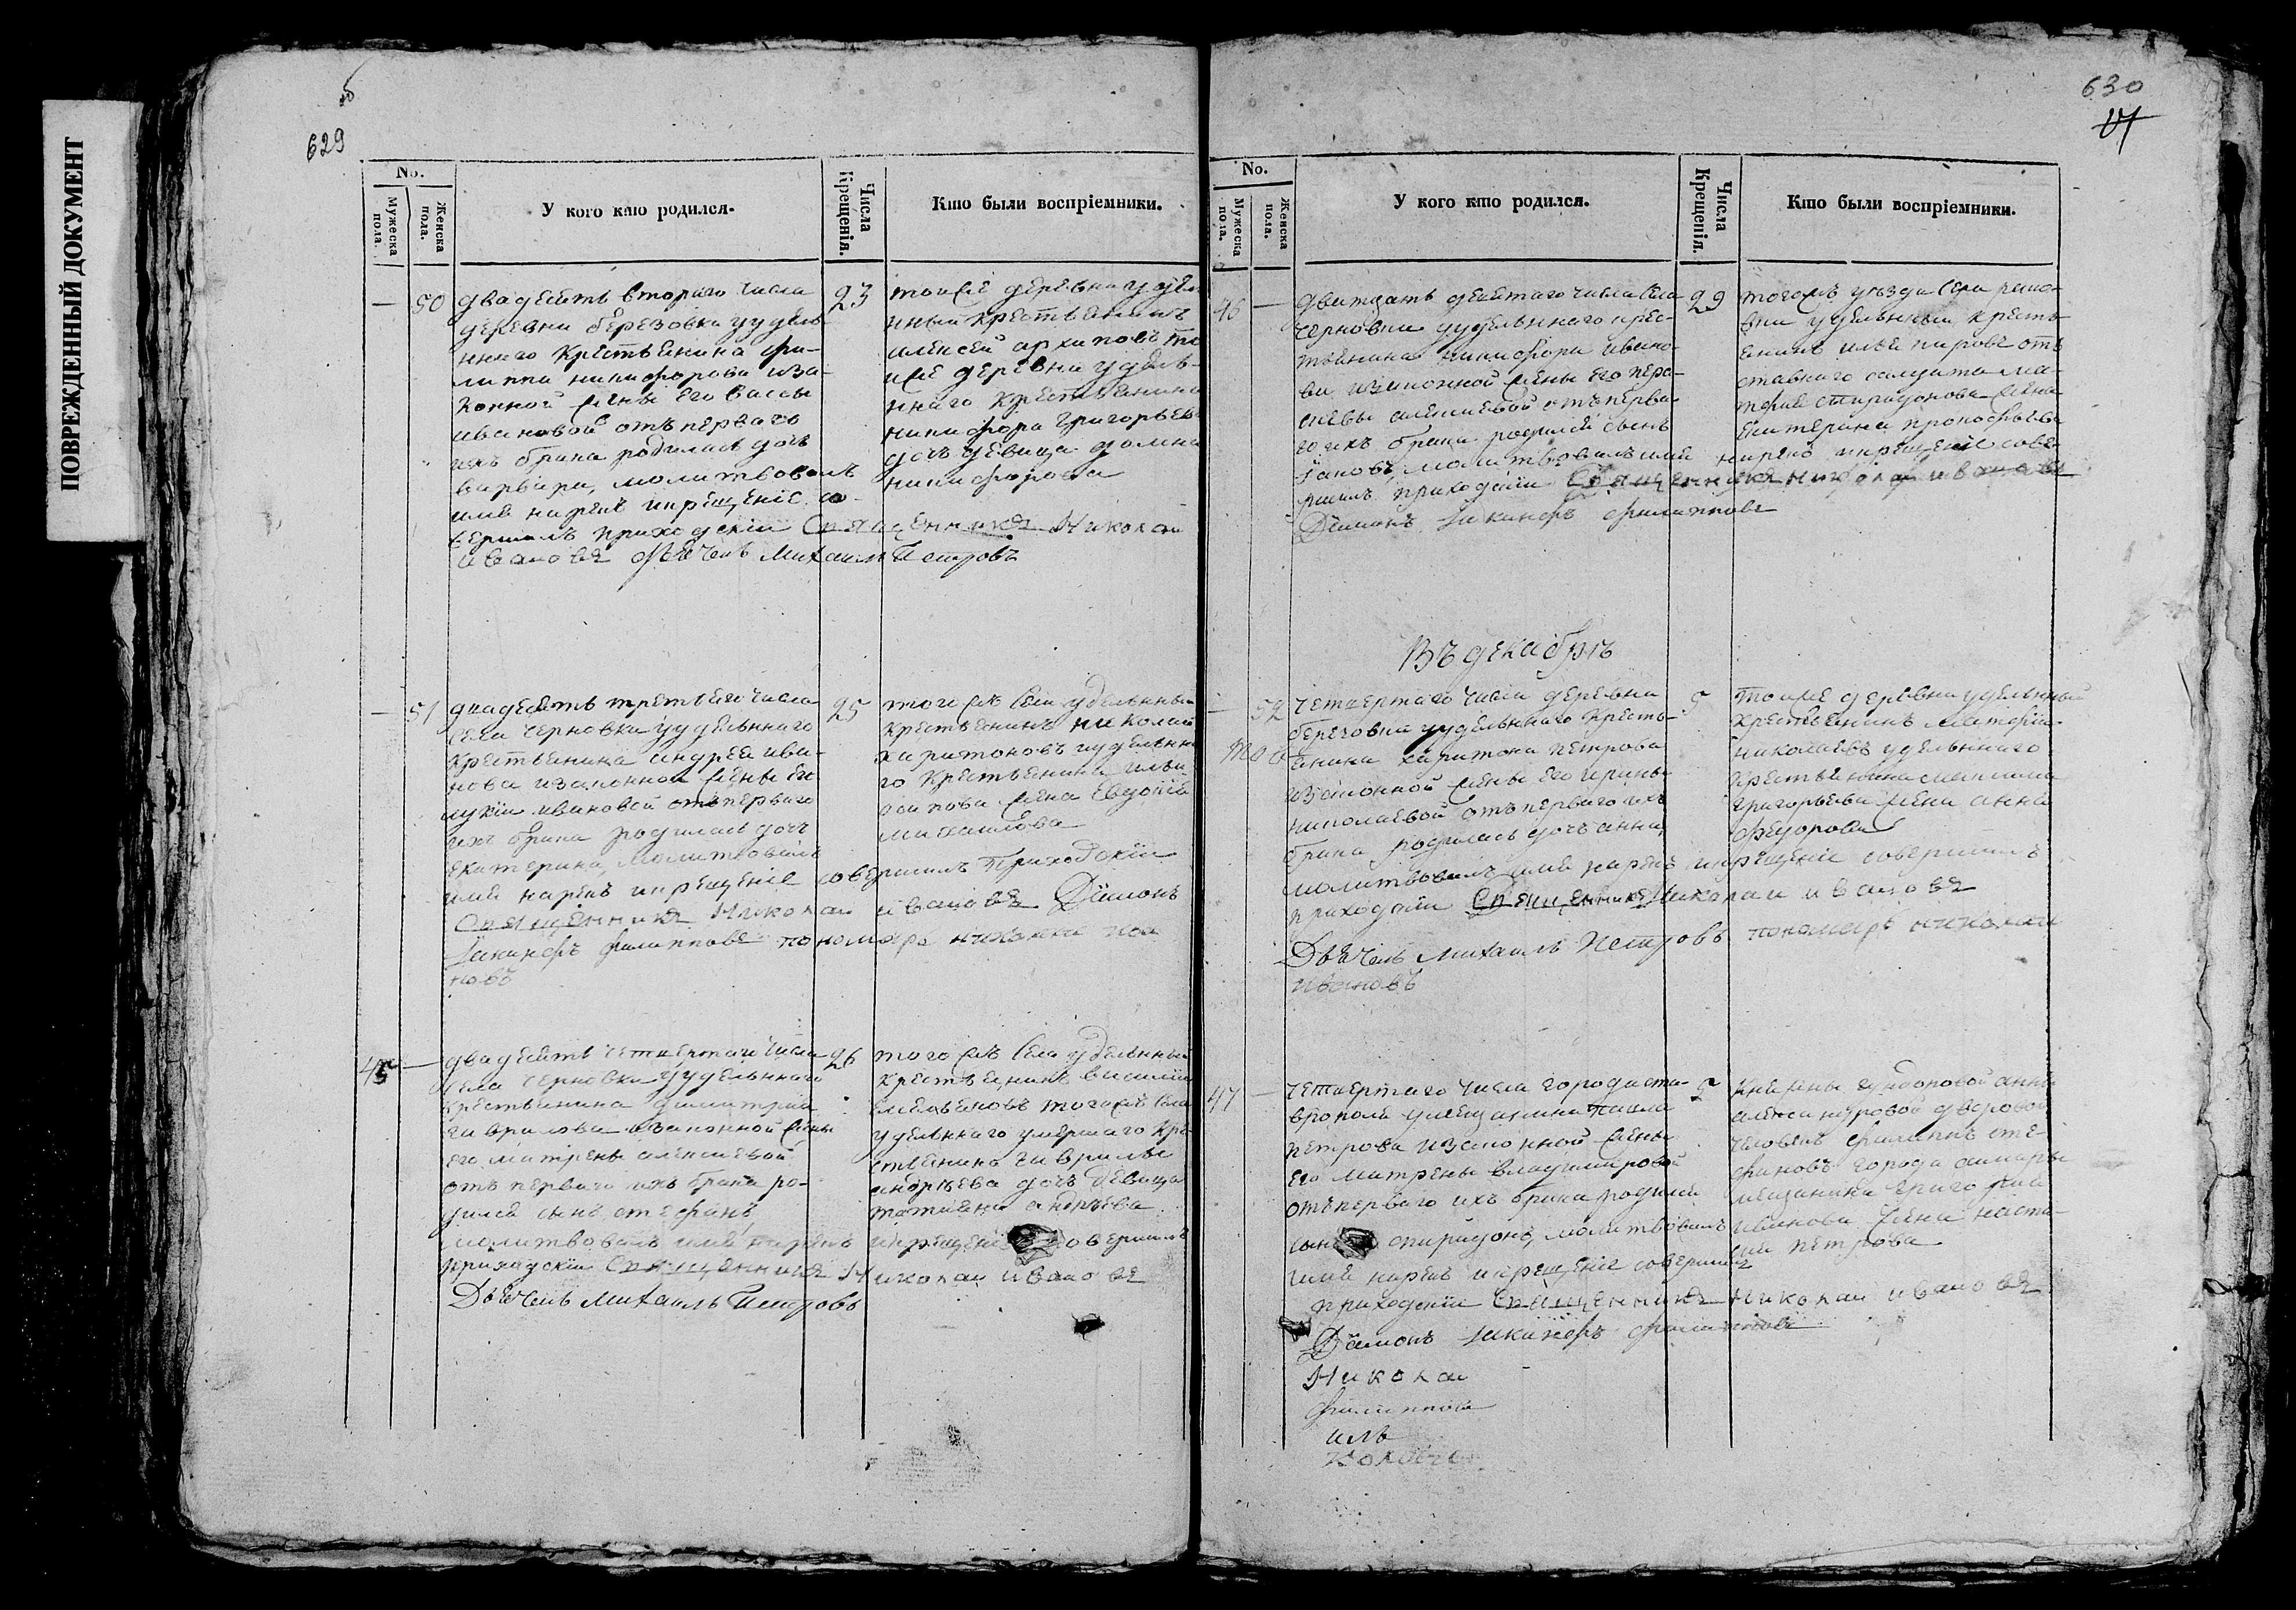 ПОВРЕЖДЕННЫЙ ДОКУМЕНТ
629
No.
Мужеска пола.
Женска пола.
У кого кто родился.
Числа Крещенія.
Кто были воспріемники.
— 50
двадесять втораго числа
деревни березовки у удѣль-
ннаго крестьянина фи-
липпа никифорова иза-
конной жены его вассы
ивановой отъ перваго
ихъ брака родилась дочь
варвара, молитвовалъ
имя нарекъ икрещеніе со-
вершилъ приходскій Священникъ Николай
Ивановъ Дьячекъ Михаилъ Петровъ
23
тойже деревни удѣл
нный крестьянинъ
алексей архиповъ то
иже деревни удѣль-
ннаго крестьянина
никифора григорьев
дочь девица домна
никифорова
— 51
двадесять третьяго числа
села черновки у удѣльннаго
крестьянина андрея ива-
нова изаконной жены ег
лукіи ивановой отъ перваго
ихъ брака родилась дочь
екатерина, молитвовалъ
имя нарекъ икрещеніе совершилъ приходскій
Священникъ Николай Ивановъ Діаконъ
Іакинфъ филипповъ пономарь николай ива
новъ
25
тогожъ села удѣльнны
крестьянинъ николай
харитоновъ иудѣльнн
го крестьянина ильи
жена евдокія
михаилова
45 —
двадесять четвертаго числа
села черновки у удѣльннаго
крестьянина димитрія
гаврилова изаконной жены
его матрены алексиевой
отъ перваго ихъ брака ро-
дился сынъ стефанъ,
молитвовалъ имя нарекъ икрещеніе совершилъ
приходскій Священникъ Николай Ивановъ
Дьячекъ Михаилъ Петровъ
26
тогожъ села удѣльнны
крестьянинъ василій
емельяновъ тогожъ села
удѣльннаго умершаго кре
стьянина гаврилы
андрѣева дочь девица
татіана андрѣева
630
No.
Мужеска пола.
Женска пола.
У кого кто родился.
Числа Крещенія.
Кто были воспріемники.
46 —
дватцать девятаго числа села
черновки у удѣльннаго крес-
тьянина никифора ивано-
ва изаконной жены его пара-
скевы алексиевой отъ перва-
го ихъ брака родился сынъ
іаковъ, молитвовалъ имя нареко икрещеніе сове-
ршилъ приходскій Священникъ Николай Ивановъ
Діаконъ Іакинфъ филипповъ
29
тогожъ уѣзда села
удѣльнный кресть-
янинъ илья отъ
ставнаго салдата ма-
тфия спиридонова жена
екатерина прокофьева
Въ декабрѣ
— 52
четвертаго числа деревни
березовки у удѣльннаго кресть-
янина харитона петрова
изаконной жены его ирины
николаевой отъ перваго ихъ
брака родилась дочь анна,
молитвовалъ имя нарекъ икрещеніе совершилъ
приходскій Священникъ Николай Ивановъ
Дьячекъ Михаилъ Петровъ пономарь николай
ивановъ
5
тоиже деревни удѣльнный
крестьянинъ матфій
николаевъ удѣльннаго
крестьянина максима
григорьева жена анна
федорова
47 —
четвертаго числа города ста-
врополя умещанина павла
петрова изаконной жены
его матрены владимировой
отъ перваго ихъ брака родился
сынъ спиридонъ, молитвовалъ
имя нарекъ икрещеніе совершилъ
приходскій Священникъ Николай Ивановъ
Діаконъ Іакинфъ филипповъ
5
княжны гундоровой анны
александровой дворовой
человекъ филиппъ сте-
фановъ города самары
мещанина григорія
иванова жена наста-
сия петрова
Николай